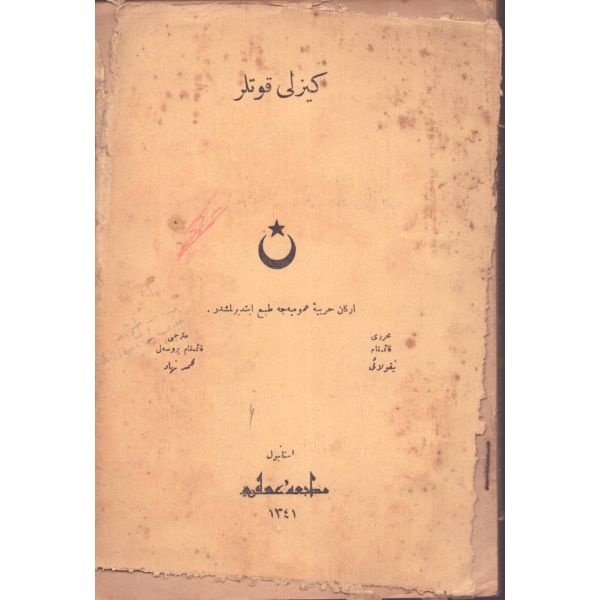 كيزلى قوتلر
اركان حربيهٔ عموميه‌جه طبع ايتديرلمشدر .
محررى
قائمقام
نيقولائى
مترجمى
قائمقام بروسه‌لى
محمد نهاد
استانبول
مطبعهٔ عسكريه
١٣٤١